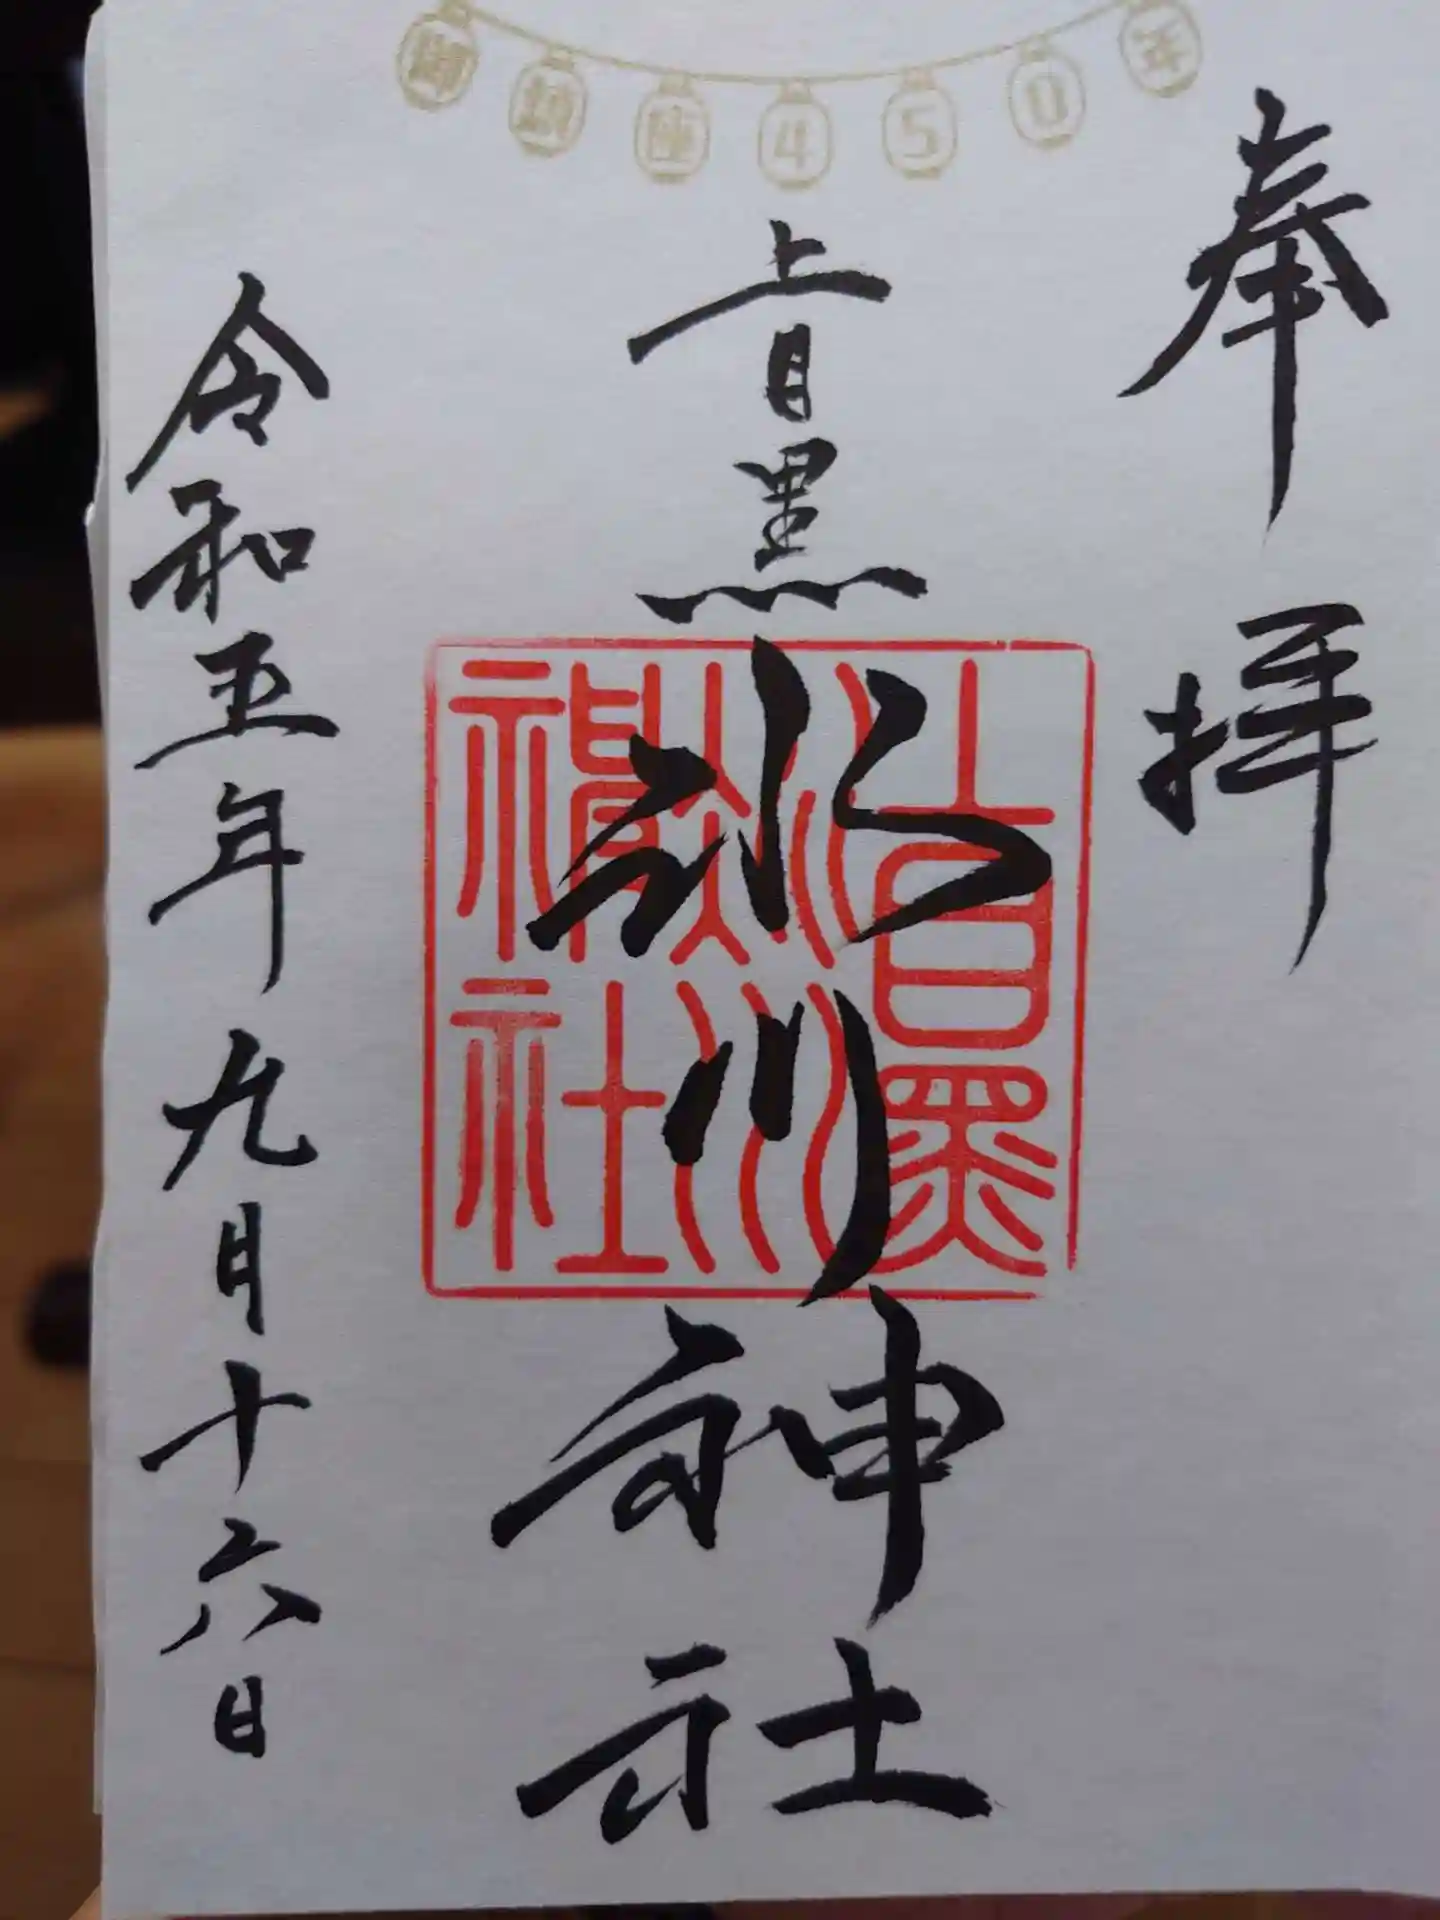 御鎮座450年
奉拝
上目黒氷川神社
上目黒
氷川
神社
令和五年九月十六日